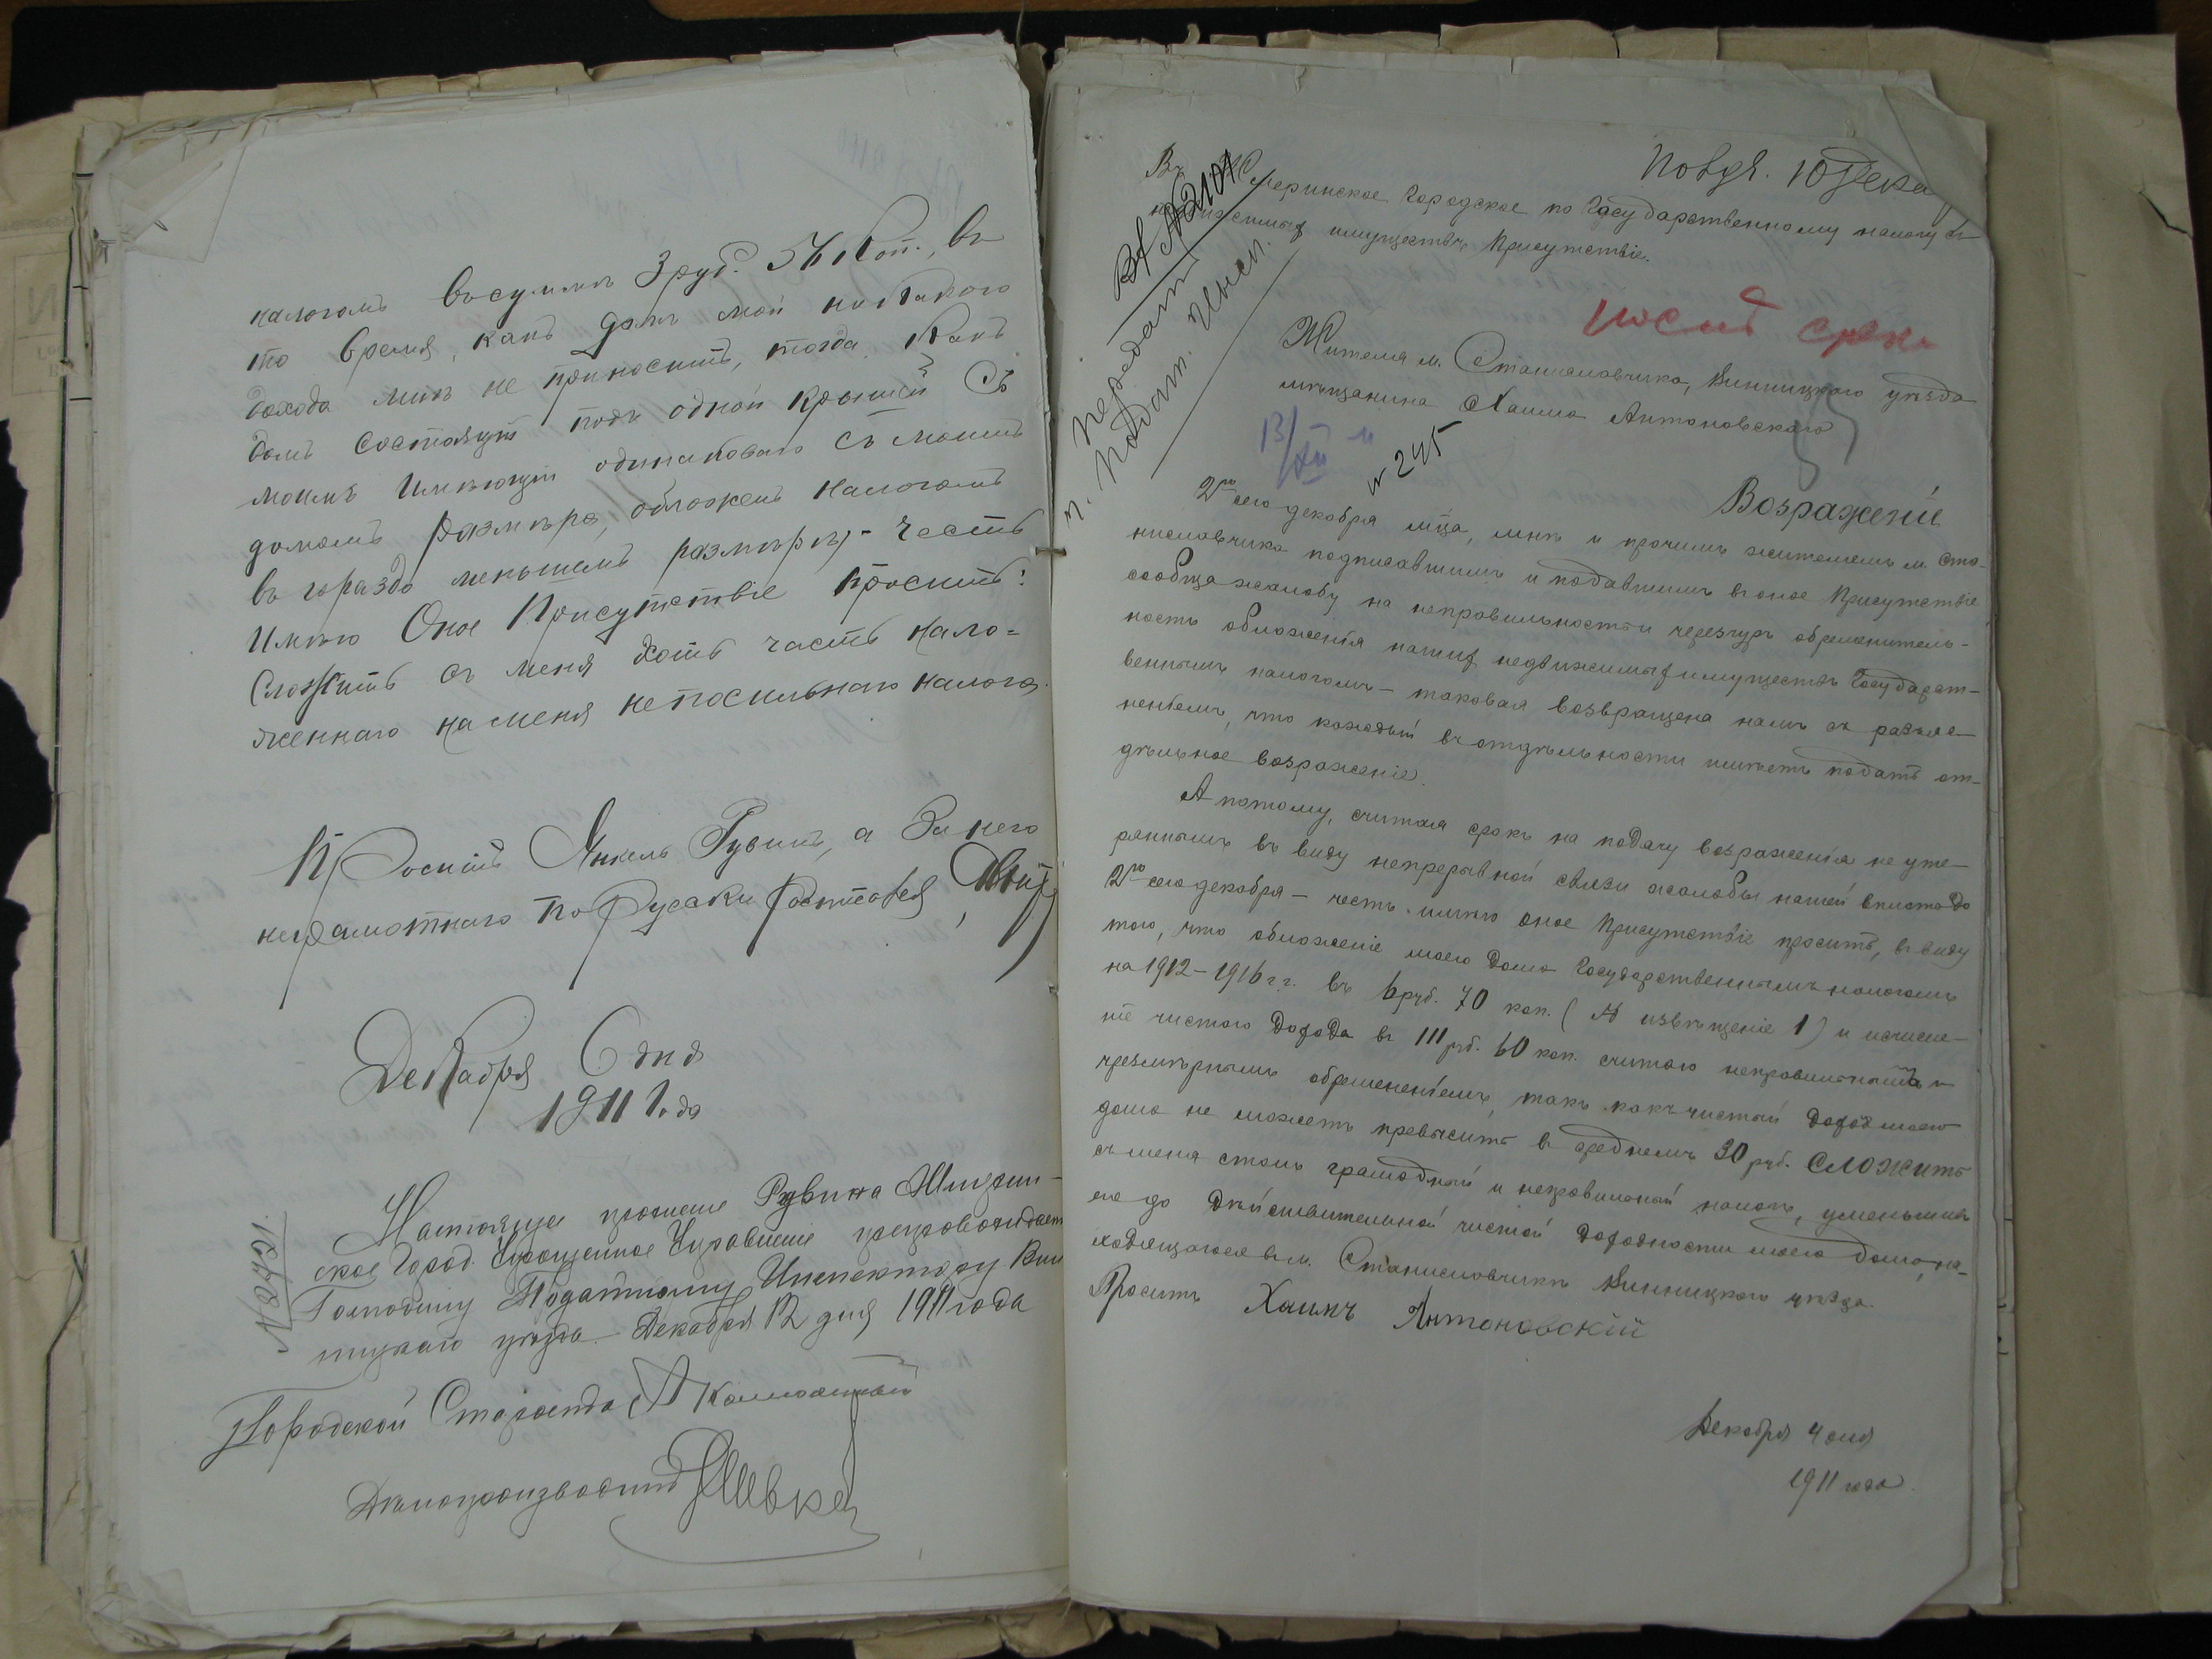 налогомъ въ сумме 3 руб. 54 коп., въ
то время, какъ домъ мой никакого
дохода мнѣ не приноситъ, тогда какъ
домъ состоящій подъ одной крышей съ
моимъ имѣющій одинаковаго съ моимъ
домомъ размѣра, обложенъ налогомъ
въ гораздо меньшемъ размѣрѣ, - честь
имѣю Оное Присутствіе просить:
Сложить съ меня хоть часть нало=
женнаго на меня непосильнаго налога.
Проситъ Янкель Рувинъ, а за него
неграмотнаго по Русски росписался
Декабря 6 дня
1911 года
№ 2721.
Настоящее прошеніе Рувина Жмерин-
ское Город. Упрощенное Управленіе препровождаетъ
Господину Податному Инспектору Вин
ницкаго уѣзда. Декабря 12 дня 1911 года
Городской Староста
Дѣлопроизводитель
Повѣд. 10 Дека
Въ Жмеринское Городское по Государственному налогу съ
недвижимыхъ имуществъ Присутствіе.
Вх № 2101
передать
г. Подат. Инсп.
послѣ срока
Жителя м. Станиславчика, Винницкаго уѣзда
мѣщанина Хаима Антоновскаго
13/XII 11
№ 245
Возраженіе
2го сего декабря м-ца, мнѣ и прочимъ жителямъ м. Ста-
ниславчика подписавшимъ и подавшимъ въ оное Присутствіе
сообща жалобу на неправильность и черезчуръ обременитель-
ность обложенія нашихъ недвижимыхъ имуществъ Государст-
веннымъ налогомъ - таковая возвращена намъ съ разъяс-
неніемъ, что каждый въ отдѣльности имѣетъ подать от-
дѣльное возраженіе.
А потому, считая срокъ на подачу возраженія не уте-
ряннымъ въ виду непрерывной связи жалобы нашей вплоть до
2го сего декабря - честь имѣю оное Присутствіе просить, въ виду
того, что обложеніе моего дома Государственнымъ налогомъ
на 1912-1916 г.г. въ 6 руб. 70 коп. (№ извѣщеніе 1) и исчисле-
ніе чистаго дохода въ 111 руб. 60 коп. считаю неправильнымъ и
чрезмѣрнымъ обремененіемъ, такъ какъ чистый доходъ моего
дома не можетъ превысить въ среднемъ 30 руб. сложить
съ меня столь громадный и неправильный налогъ, уменьшивъ
его до дѣйствительной чистой доходности моего дома, на-
ходящагося въ м. Станиславчикѣ Винницкаго уѣзда.
Проситъ Хаимъ Антоновскій
Декабря 4 дня
1911 года.